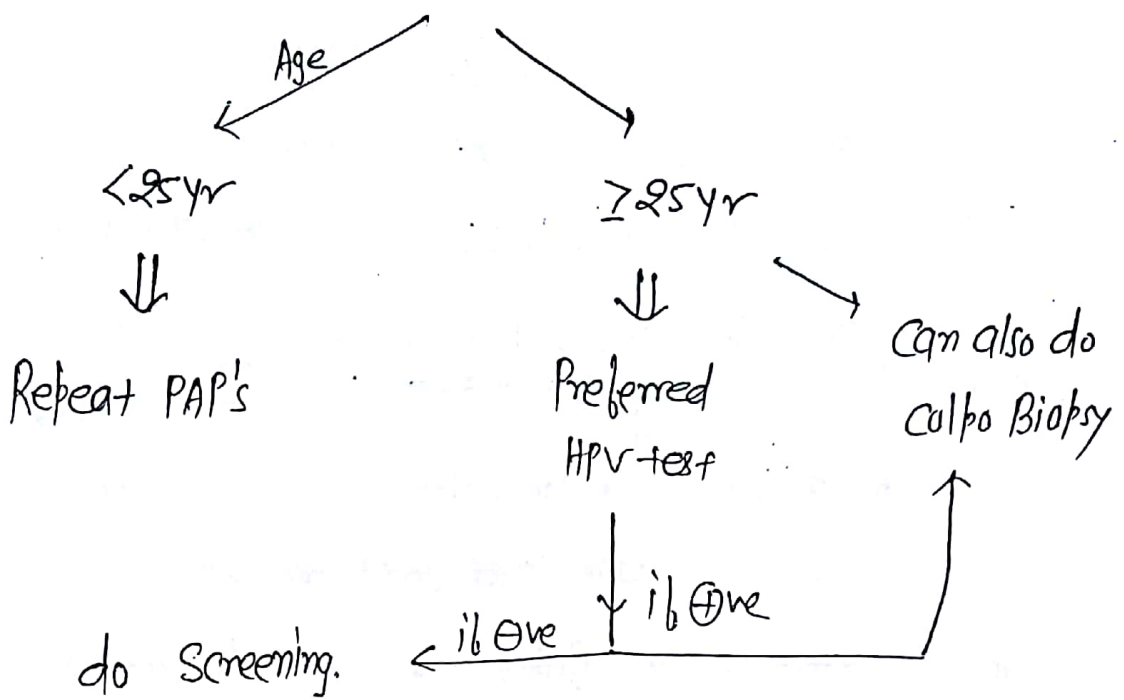 Age
<25yr
≥25yr
Repeat PAP's
Preferred
HPV test
Can also do
Colpo Biopsy
if ⊕ve
if ⊖ve
do Screening.